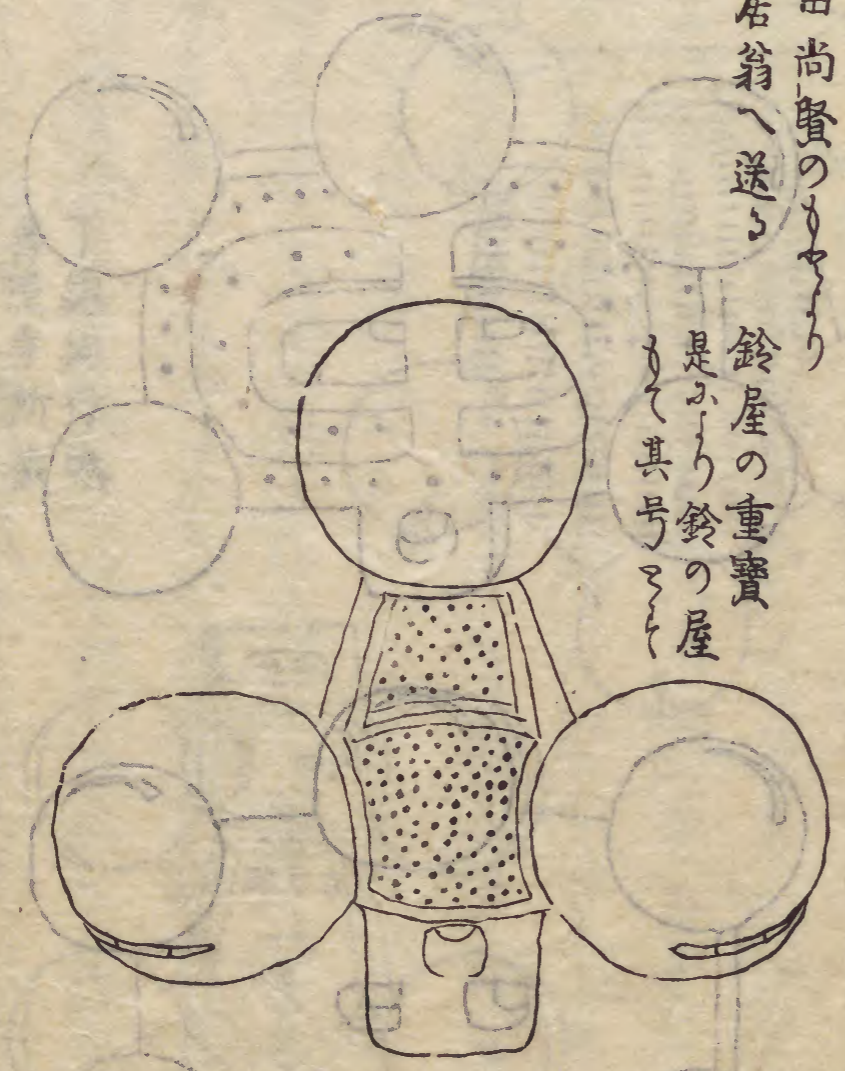 田尚賢のもとより
居翁へ送る
鈴屋の重寳
是により鈴の屋
もて其号とす